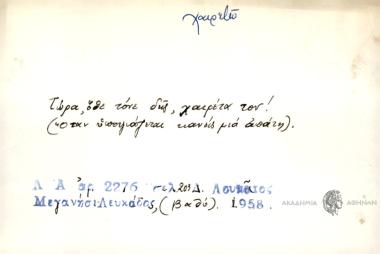 χαιρετῶ
Τώρα, ὅθε τόνε δῆς, χαιρέτα τον!
(ὅταν ὑποψιάζεται κανείς μιά ἀπάτη).
Λ Α ἀρ. 2276 σελ. 203 Δ. Λουκᾶτος
Μεγανήσι Λευκάδος, (Βαθύ). 1958.
ΑΚΑΔΗΜΙΑ ΑΘΗΝΩΝ